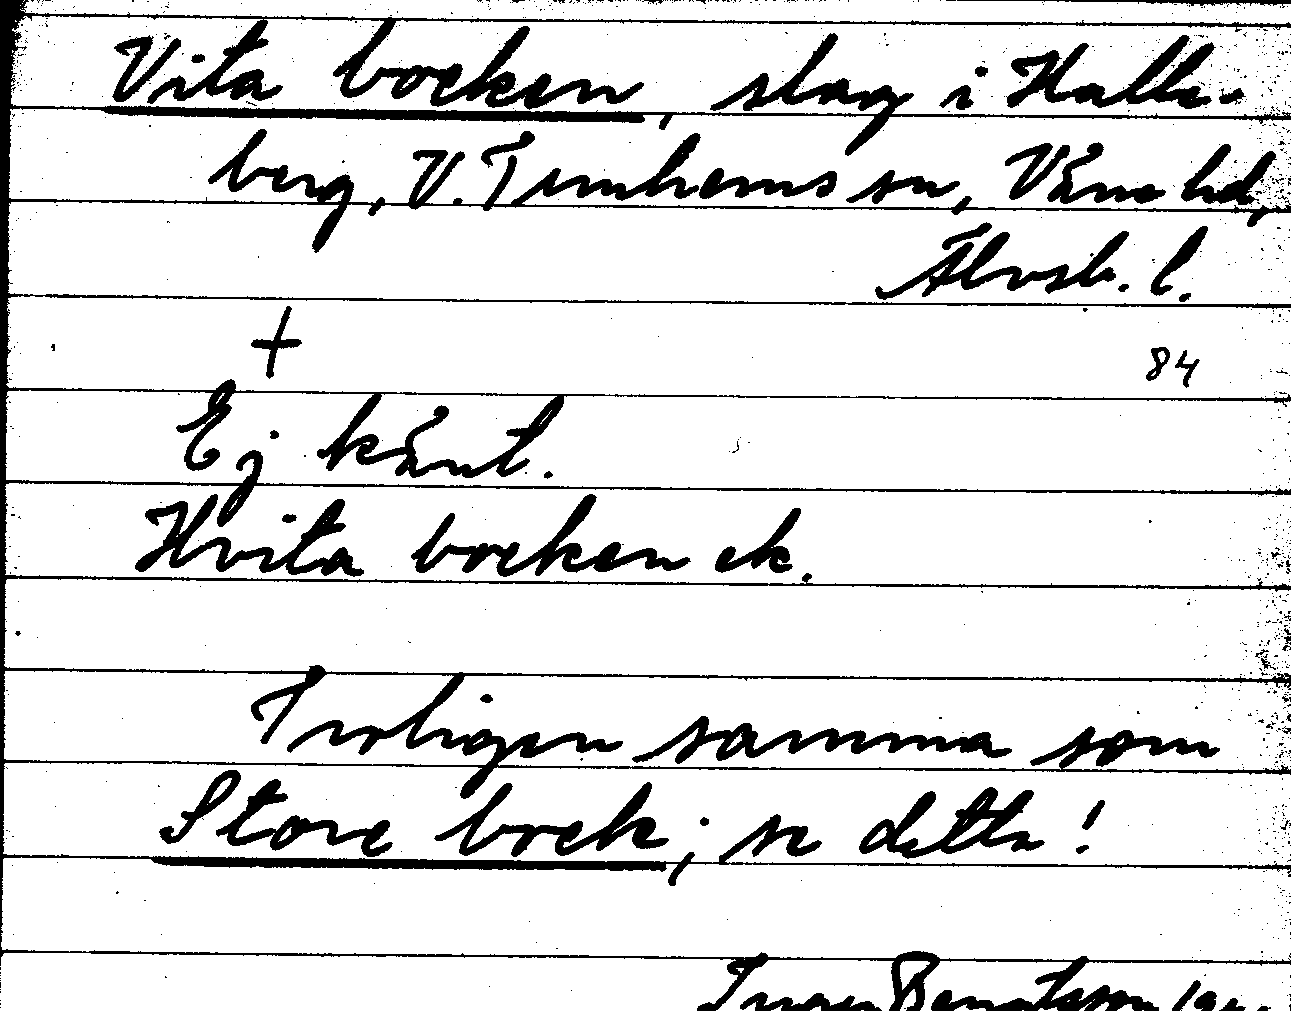 Vita bocken, slag i Halle-
berg, V. Tunhems sn, Väne hd,
Älvsb. l.
+
84
Ej känt.
Hvita bocken ek.
Troligen samma som
Store bock; se detta!
Bengtsson